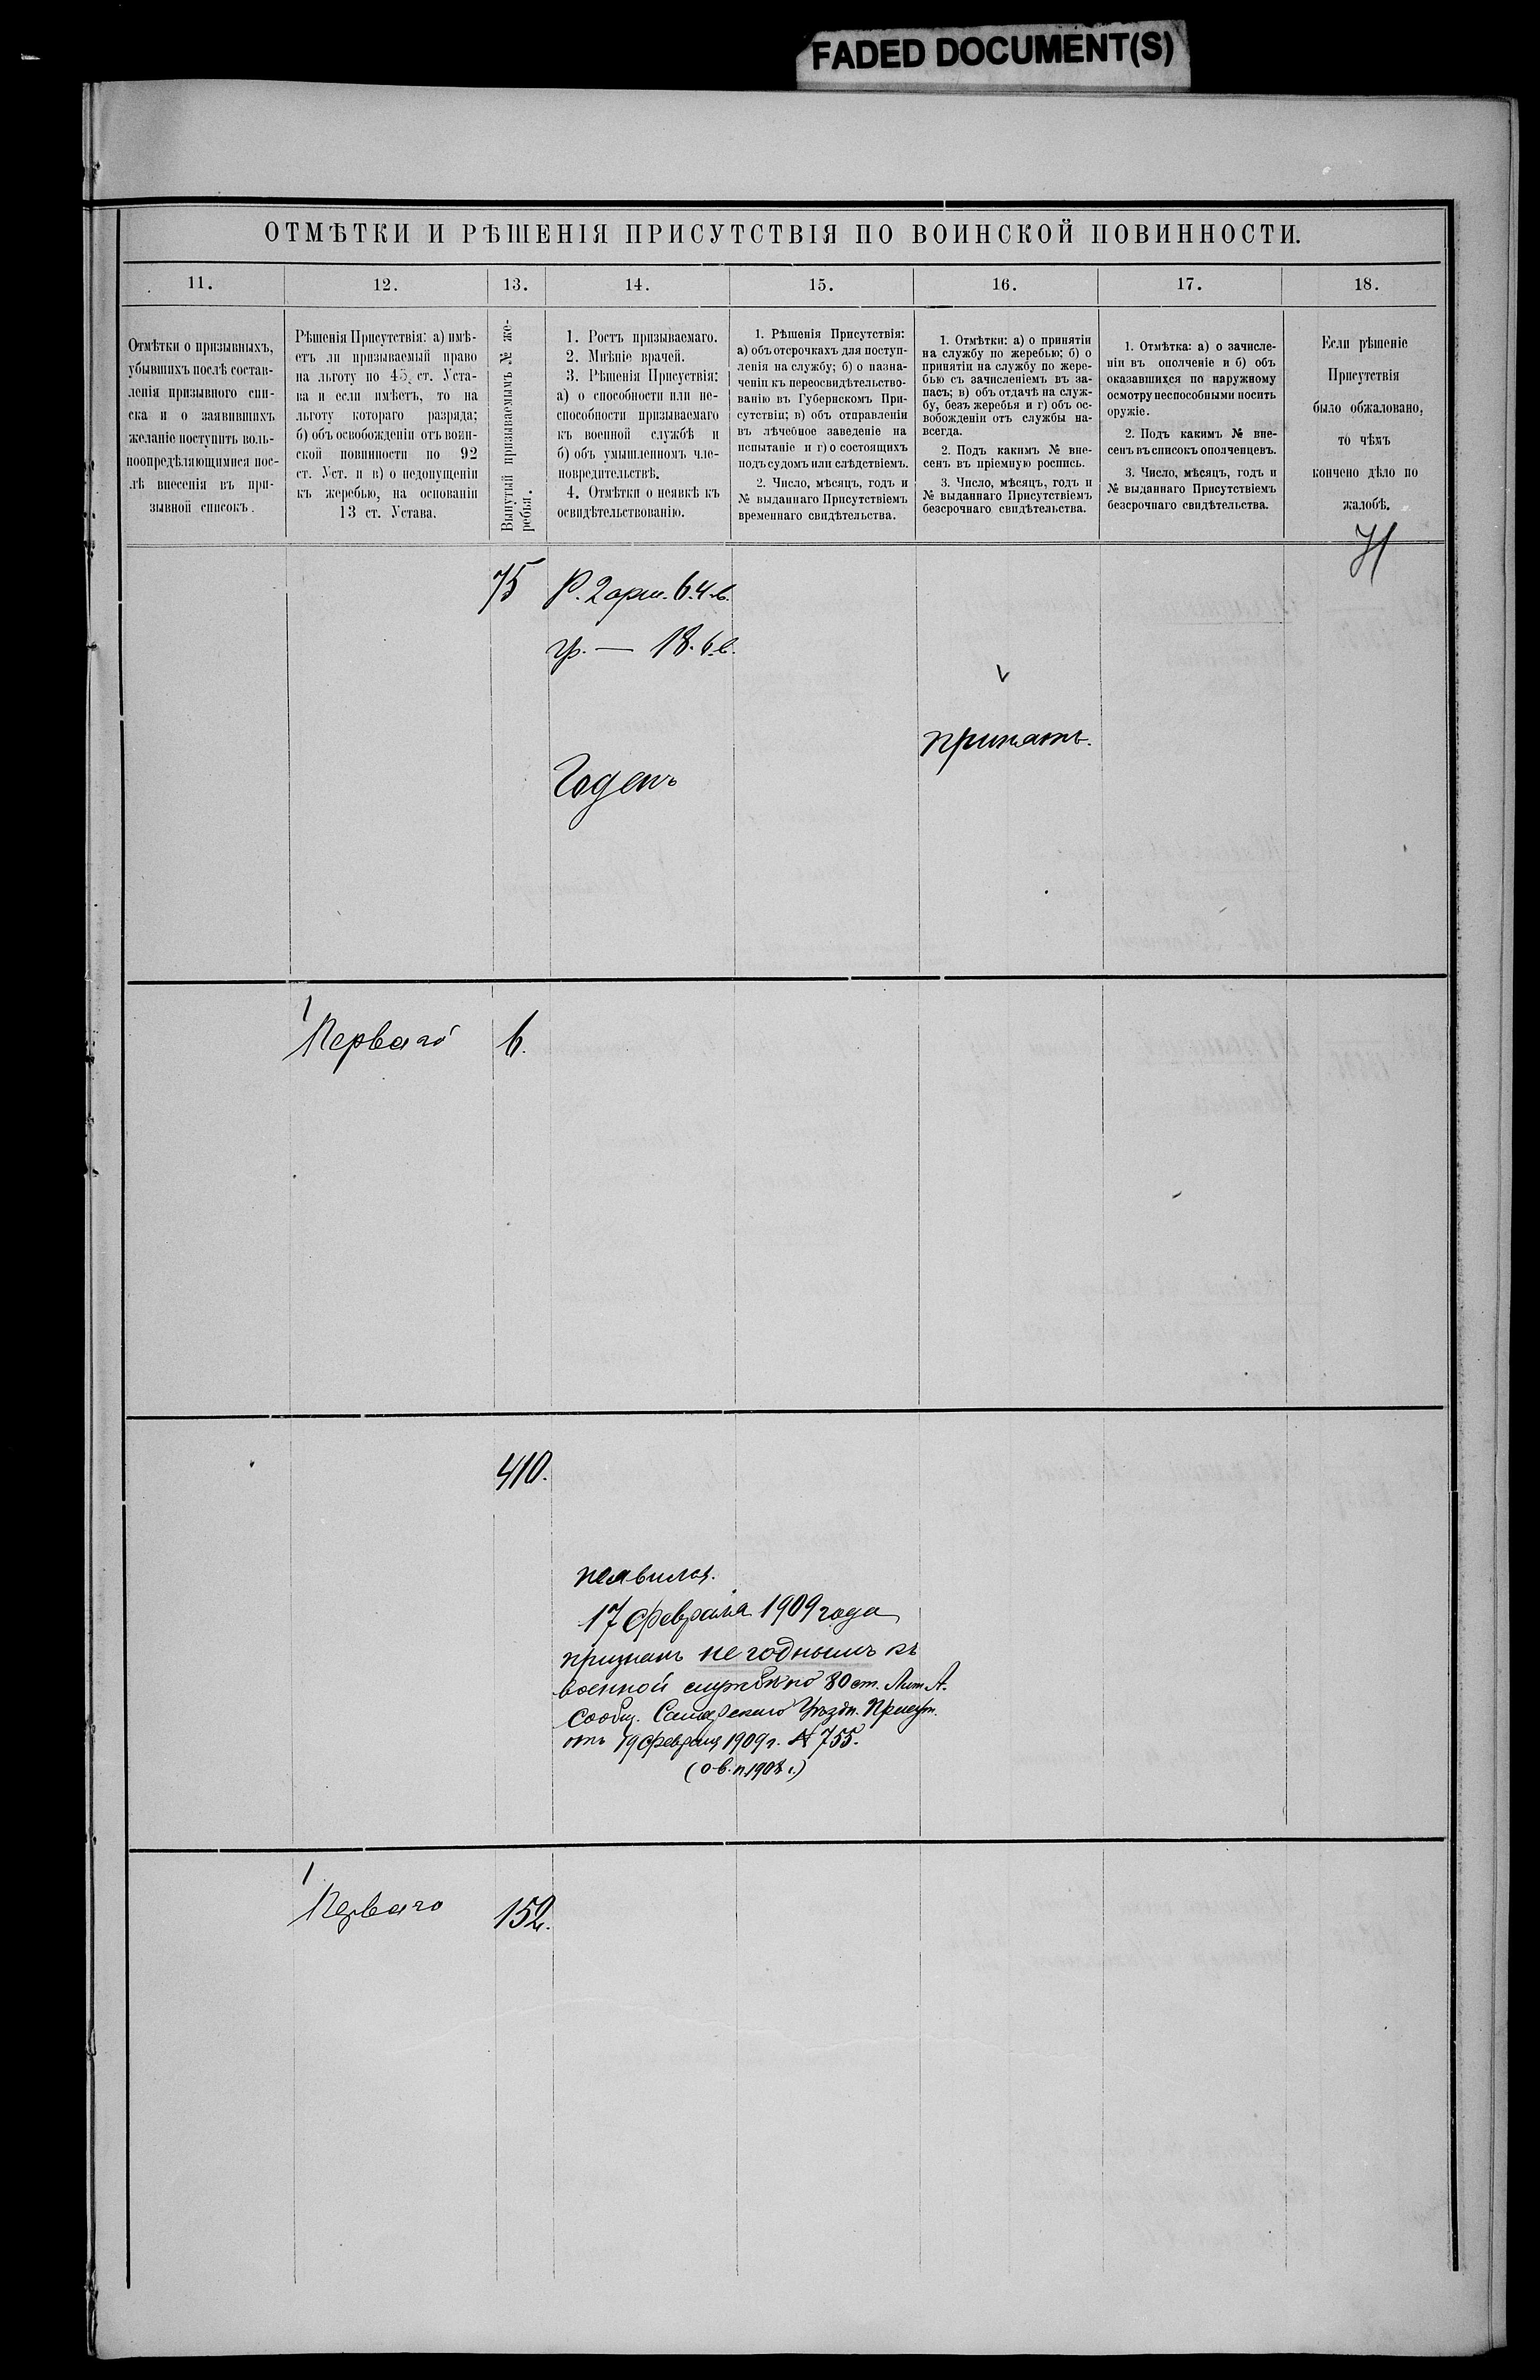 FADED DOCUMENT(S)
ОТМѢТКИ И РѢШЕНІЯ ПРИСУТСТВІЯ ПО ВОИНСКОЙ ПОВИННОСТИ.
11.
12.
13.
14.
15.
16.
17.
18.
Отмѣтки о призывныхъ,
убывшихъ послѣ состав-
ленія призывного спи-
ска и о заявившихъ
желаніе поступить воль-
ноопредѣляющимися пос-
лѣ внесенія въ при-
зывной списокъ.
Рѣшенія Присутствія: а) имѣ-
етъ ли призываемый право
на льготу по 45 ст. Уста-
ва и если имѣетъ, то на
льготу котораго разряда;
б) объ освобожденіи отъ воин-
ской повинности по 92
ст. Уст. и в) о недопущеніи
къ жеребью, на основаніи
13 ст. Устава.
Вынутый призываемымъ № же-
ребья.
1. Ростъ призываемаго.
2. Мнѣніе врачей.
3. Рѣшенія Присуствія:
а) о способности или не-
способности призываемаго
къ военной службѣ и
б) объ умышленномъ чле-
новредительствѣ.
4. Отмѣтки о неявкѣ къ
освидѣтельствованію.
1. Рѣшенія Присутствія:
а) объ отсрочкахъ для поступ-
ленія на службу; б) о назна-
ченіи къ переосвидѣтельство-
ванію въ Губернскомъ При-
сутствіи; в) объ отправленіи
въ лѣчебное заведеніе на
испытаніе и г) о состоящихъ
подъ судомъ или слѣдствіемъ.
2. Число, мѣсяцъ, годъ и
№ выданнаго Присутствіемъ
временнаго свидѣтельства.
1. Отмѣтки: а) о принятіи
на службу по жеребью; б) о
принятіи на службу по жере-
бью съ зачисленіемъ въ за-
пасъ; в) объ отдачѣ на служ-
бу, безъ жеребья и г) объ ос-
вобожденіи отъ службы на-
всегда.
2. Подъ какимъ № вне-
сенъ въ пріемную роспись.
3. Число, мѣсяцъ, годъ и
№ выданнаго Присутствіемъ
безсрочнаго свидѣтельства.
1. Отмѣтка: а) о зачисле-
ніи въ ополченіе и б) объ
оказавшихся по наружному
осмотру неспособными носить
оружіе.
2. Подъ какимъ № вне-
сенъ въ списокъ ополченцевъ.
3. Число, мѣсяцъ, годъ и
№ выданнаго Присутствіемъ
безсрочнаго свидѣтельства.
Если рѣшеніе
Присутствія
было обжаловано,
то чѣмъ
кончено дѣло по
жалобѣ.
75
Р. 2 арш. 6.4 в.
гр. — 18. 6 в.
Годенъ
принятъ.
Перваго
6.
410.
неявился.
17 февраля 1909 года
признанъ негоднымъ къ
военной службѣ по 80 ст. Лит А.
Сообщ. Самарскаго Уѣздн. Присут.
отъ 19 февраля 1909 г. № 755.
(о в. п. 1908 г.)
Перваго
152.